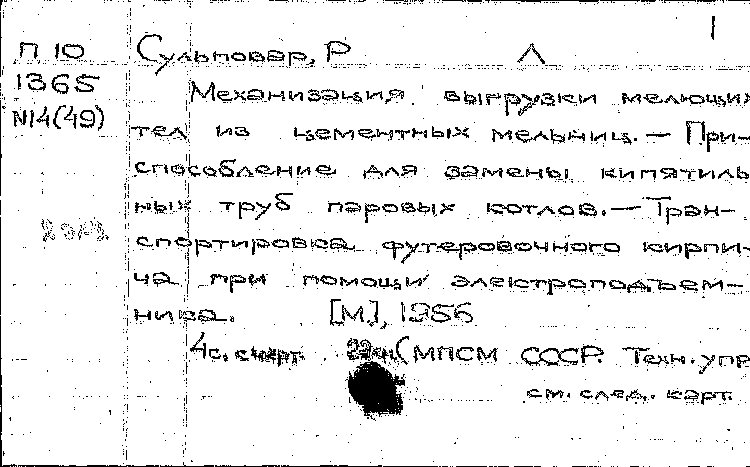 П 10 Сульповар, Р
1365
Механизация выгрузки мелющих
N14(49)
тел из цементных мельниц. — При-
способление для замены кипятиль
ных труб паровых котлов. — Тран-
спортировка футеровочного кирпи-
ча при помощи электроподъем-
ника. [М.], 1956
4с. с черт. 22см. (МПСМ СССР. Техн. упр
см. след. карт.